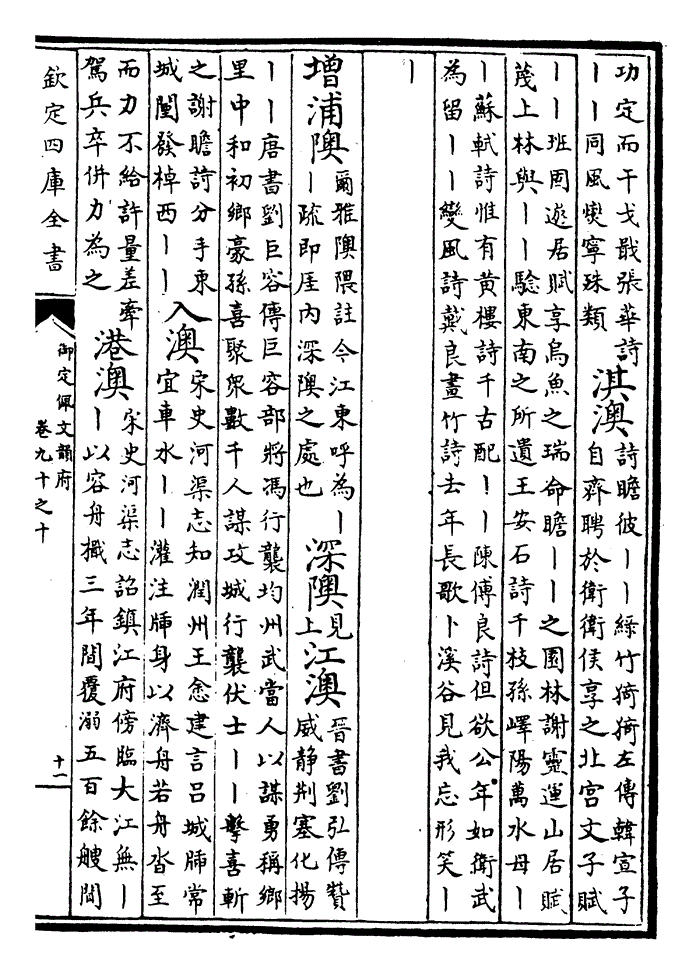 功定而干戈戢張華詩
丨丨同風燠寧珠類
淇澳
詩瞻彼丨丨綠竹猗猗左傳韓宣子
自齊聘於衛衛侯享之北宮文子賦
丨丨班固遊居賦享烏魚之瑞命瞻丨丨之園林謝靈運山居賦
蔑上林與丨丨驗東南之所遺王安石詩千枝孫嶧陽萬水母丨
丨蘇軾詩惟有黄樓詩千古配丨丨陳傅良詩但欲公年如衛武
為留丨丨變風詩戴良畫竹詩去年長歌卜溪谷見我忘形笑丨
丨
增浦隩
爾雅隩隈註今江東呼為丨
丨疏即厓内深隩之處也
深隩
見上
江澳
晉書劉弘傳贊
威静荆塞化揚
丨丨唐書劉巨容傳巨容部將馮行襲均州武當人以謀勇稱鄉
里中和初鄉豪孫喜聚衆數千人謀攻城行襲伏士丨丨擊喜斬
之謝瞻詩分手東
城闉發棹西丨丨
入澳
宋史河渠志知潤州王悆建言呂城牐常
宜車水丨丨灌注牐身以濟舟若舟沓至
而力不給許量差牽
駕兵卒併力為之
港澳
宋史河渠志詔鎮江府傍臨大江無丨
丨以容舟檝三年間覆溺五百餘艘間
欽定四庫全書
御定佩文韻府
卷九十之十
十一